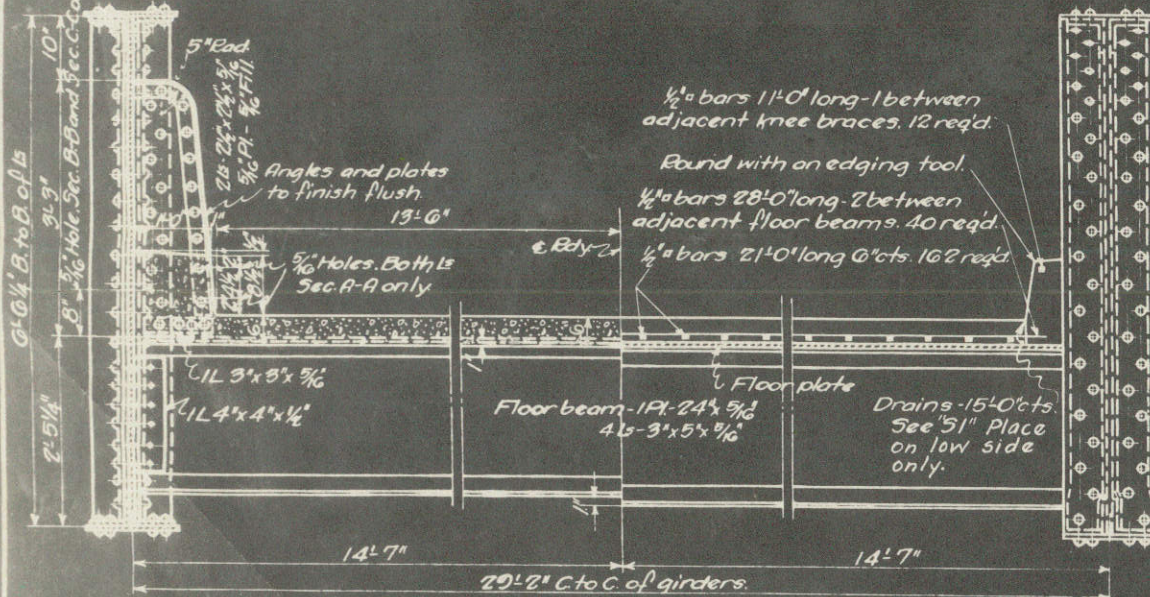 10"
3'-3"
8"
6'-6¼" B. to B. of Ls
2'-5¼"
5/16" Hole. Sec. B-B and Sec. C-C
5" Rad.
2Ls-2½"x2½"x5/16"
5/16" Pl.-5/16" Fill.
Angles and plates
to finish flush.
13'-6"
5/16" Holes. Both Ls
Sec. A-A only.
℄ Rdy.
½"▫ bars 11'-0" long-1 between
adjacent knee braces. 12 req'd.
Round with an edging tool.
½"▫ bars 28'-0" long-2 between
adjacent floor beams. 40 req'd.
½"▫ bars 21'-0" long 6" cts. 162 req'd
6"
1"
6"
1L 3"x3"x5/16"
1L 4"x4"x½"
Floor plate
Floor beam-1Pl.-24"x5/16"
4Ls-3"x5"x5/16"
Drains-15'-0" cts.
See "S1" Place
on low side
only.
1"
14'-7"
14'-7"
29'-2" C. to C. of girders.